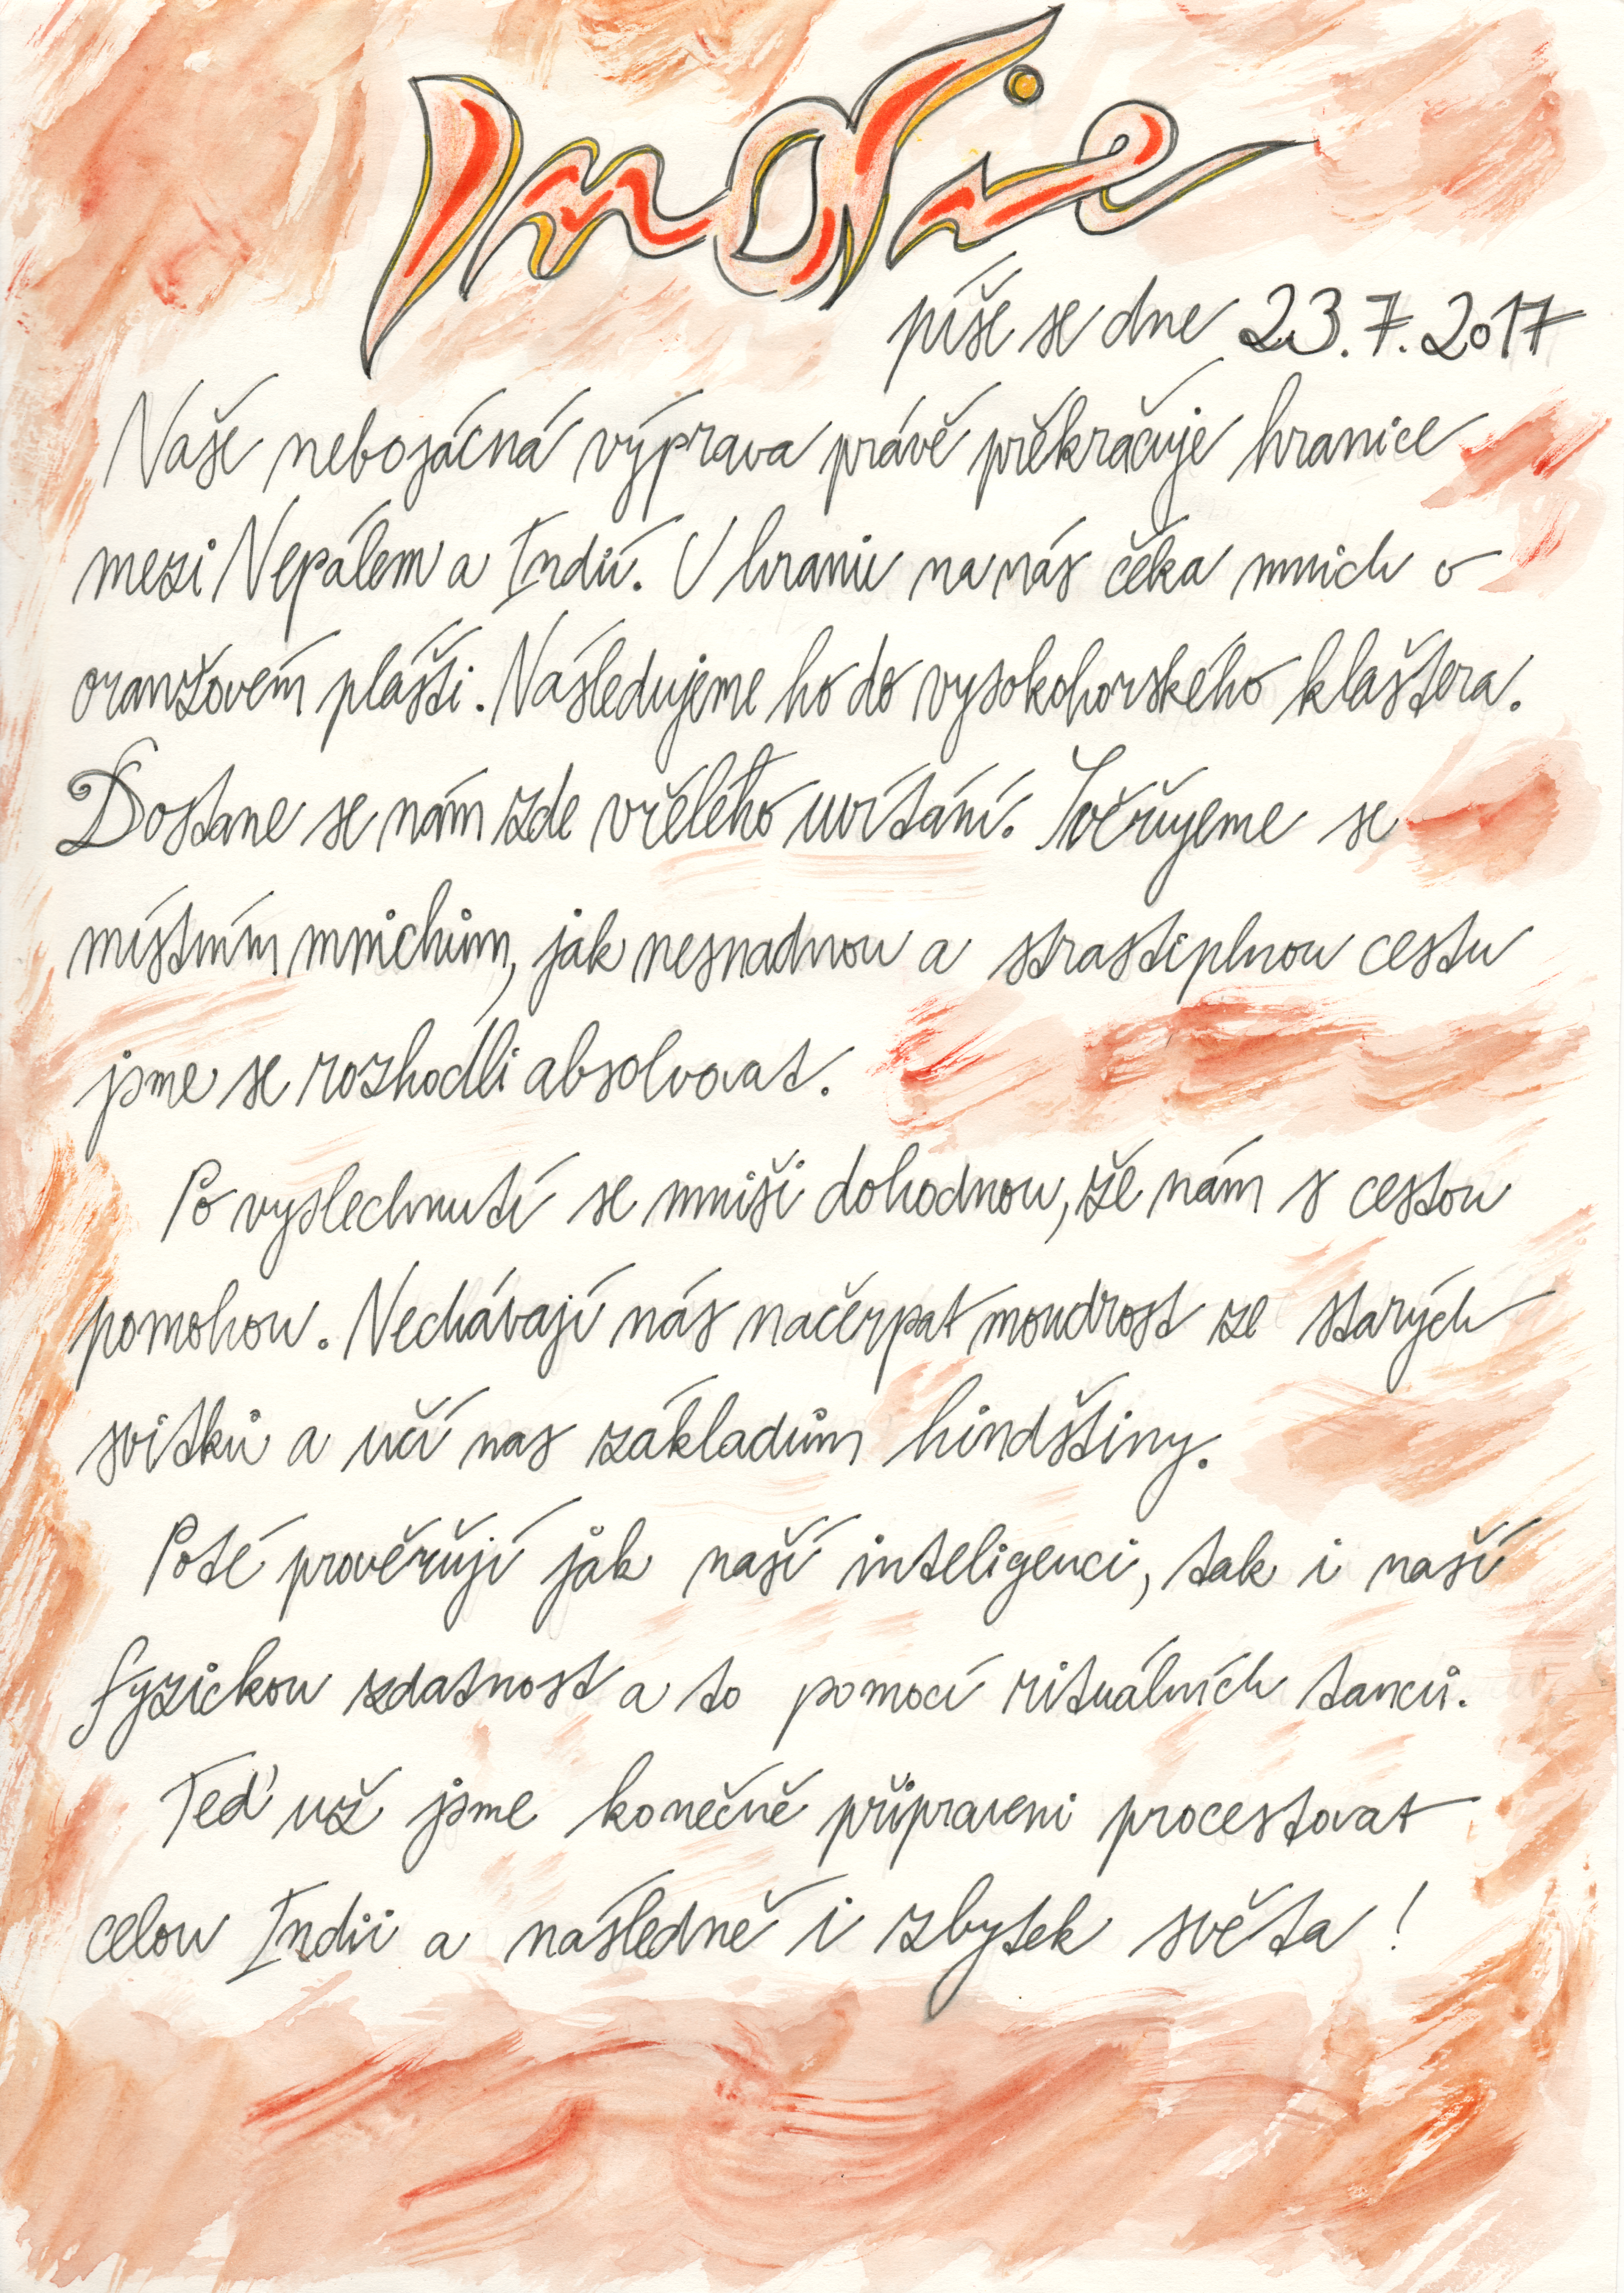 Indie
píše se dne 23.7.2017
Naše nebojácná výprava právě překračuje hranice
mezi Nepálem a Indií. U hranic na nás čeká mnich v
oranžovém plášti. Následujeme ho do vysokohorského kláštera.
Dostane se nám zde vřelého uvítání. Svěřujeme se
místním mnichům, jak nesnadnou a strastiplnou cestu
jsme se rozhodli absolvovat.
Po vyslechnutí se mniši dohodnou, že nám s cestou
pomohou. Nechávají nás načerpat moudrost ze starých
svitků a učí nás základům hindštiny.
Poté prověřují jak naší inteligenci, tak i naší
fyzickou zdatnost a to pomocí rituálních tanců.
Teď už jsme konečně připraveni procestovat
celou Indii a následně i zbytek světa!